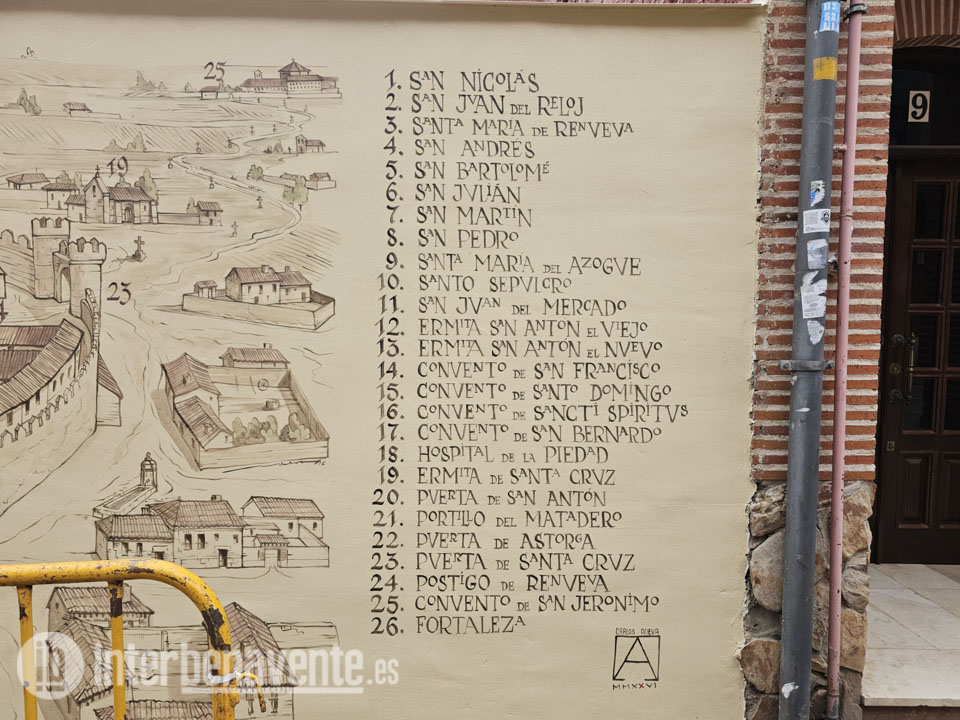 25
19
23
1. SAN NICOLÁS
2. SAN JUAN DEL RELOJ
3. SANTA MARÍA DE RENUEVA
4. SAN ANDRÉS
5. SAN BARTOLOMÉ
6. SAN JULIÁN
7. SAN MARTÍN
8. SAN PEDRO
9. SANTA MARÍA DEL AZOGUE
10. SANTO SEPULCRO
11. SAN JUAN DEL MERCADO
12. ERMITA SAN ANTÓN EL VIEJO
13. ERMITA SAN ANTÓN EL NUEVO
14. CONVENTO DE SAN FRANCISCO
15. CONVENTO DE SANTO DOMINGO
16. CONVENTO DE SANCTI SPIRITUS
17. CONVENTO DE SAN BERNARDO
18. HOSPITAL DE LA PIEDAD
19. ERMITA DE SANTA CRUZ
20. PUERTA DE SAN ANTÓN
21. PORTILLO DEL MATADERO
22. PUERTA DE ASTORGA
23. PUERTA DE SANTA CRUZ
24. POSTIGO DE RENUEVA
25. CONVENTO DE SAN JERONIMO
26. FORTALEZA
CARLOS ADEVA
A
MMXXVI
9
interbenavente.es